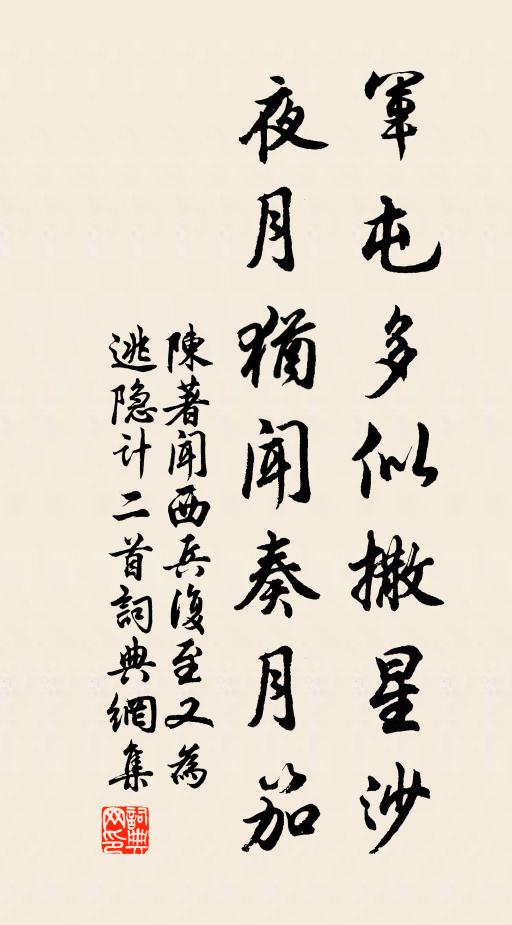 軍屯多似撒星沙
夜月猶闻奏月笳
陳著闻西兵復至又為
逃隐计二首詞典網集
詞典网印